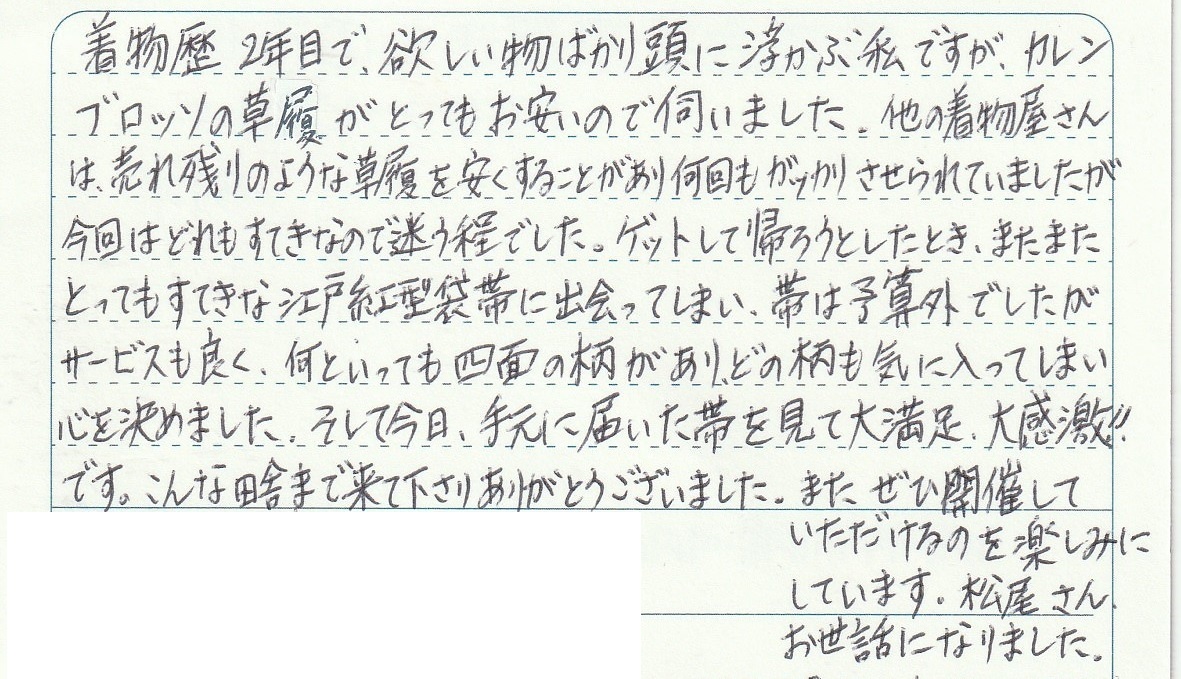 着物歴2年目で、欲しい物ばかり頭に浮かぶ私ですが、カレン
ブロッソの草履がとってもお安いので伺いました。他の着物屋さん
は、売れ残りのような草履を安くすることがあり何回もガッカリさせられていましたが
今回はどれもすてきなので迷う程でした。ゲットして帰ろうとしたとき、またまた
とってもすてきな江戸紅型袋帯に出会ってしまい、帯は予算外でしたが
サービスも良く、何といっても四面の柄があり、どの柄も気に入ってしまい
心を決めました。そして今日、手元に届いた帯を見て大満足、大感激!!
です。こんな田舎まで来て下さりありがとうございました。また ぜひ開催して
いただけるのを楽しみに
しています。松尾さん、
お世話になりました。